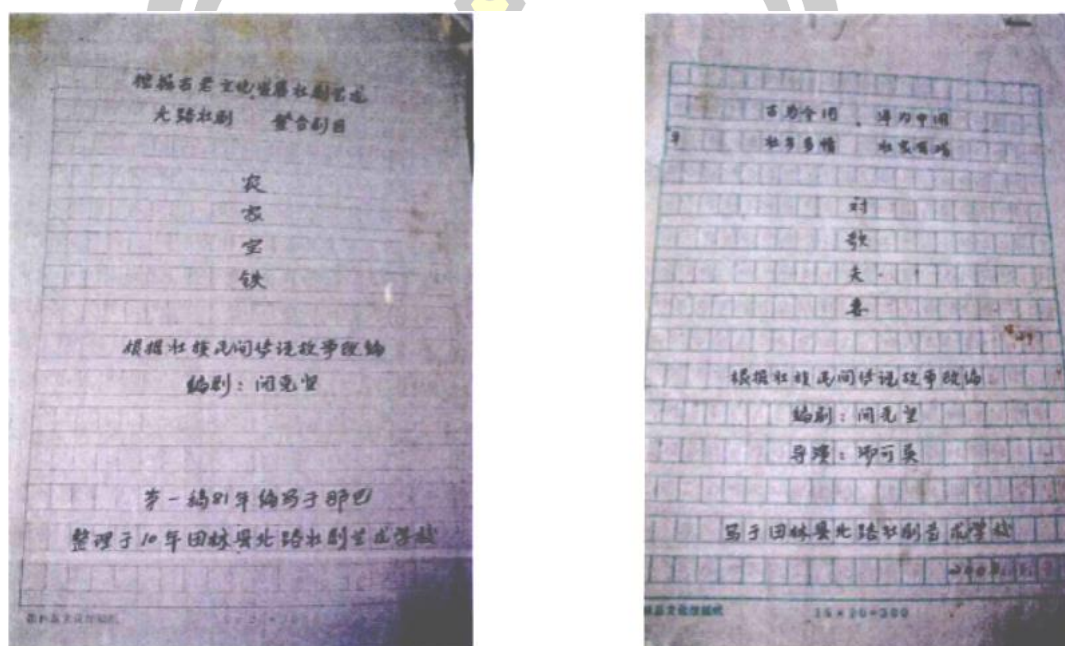 挖掘古老文化发展壮剧艺术
北路壮剧 整合剧目
农
家
宝
铁
根据壮族民间传说故事改编
编剧：闭克坚
第一稿81年编写于那巴
整理于10年田林县北路壮剧艺术学校
古为今用、洋为中用
壮乡多情
对
歌
夫
妻
根据壮族民间传说故事改编
编剧：闭克坚
导演：
写于田林县北路壮剧艺术学校
15×20=300